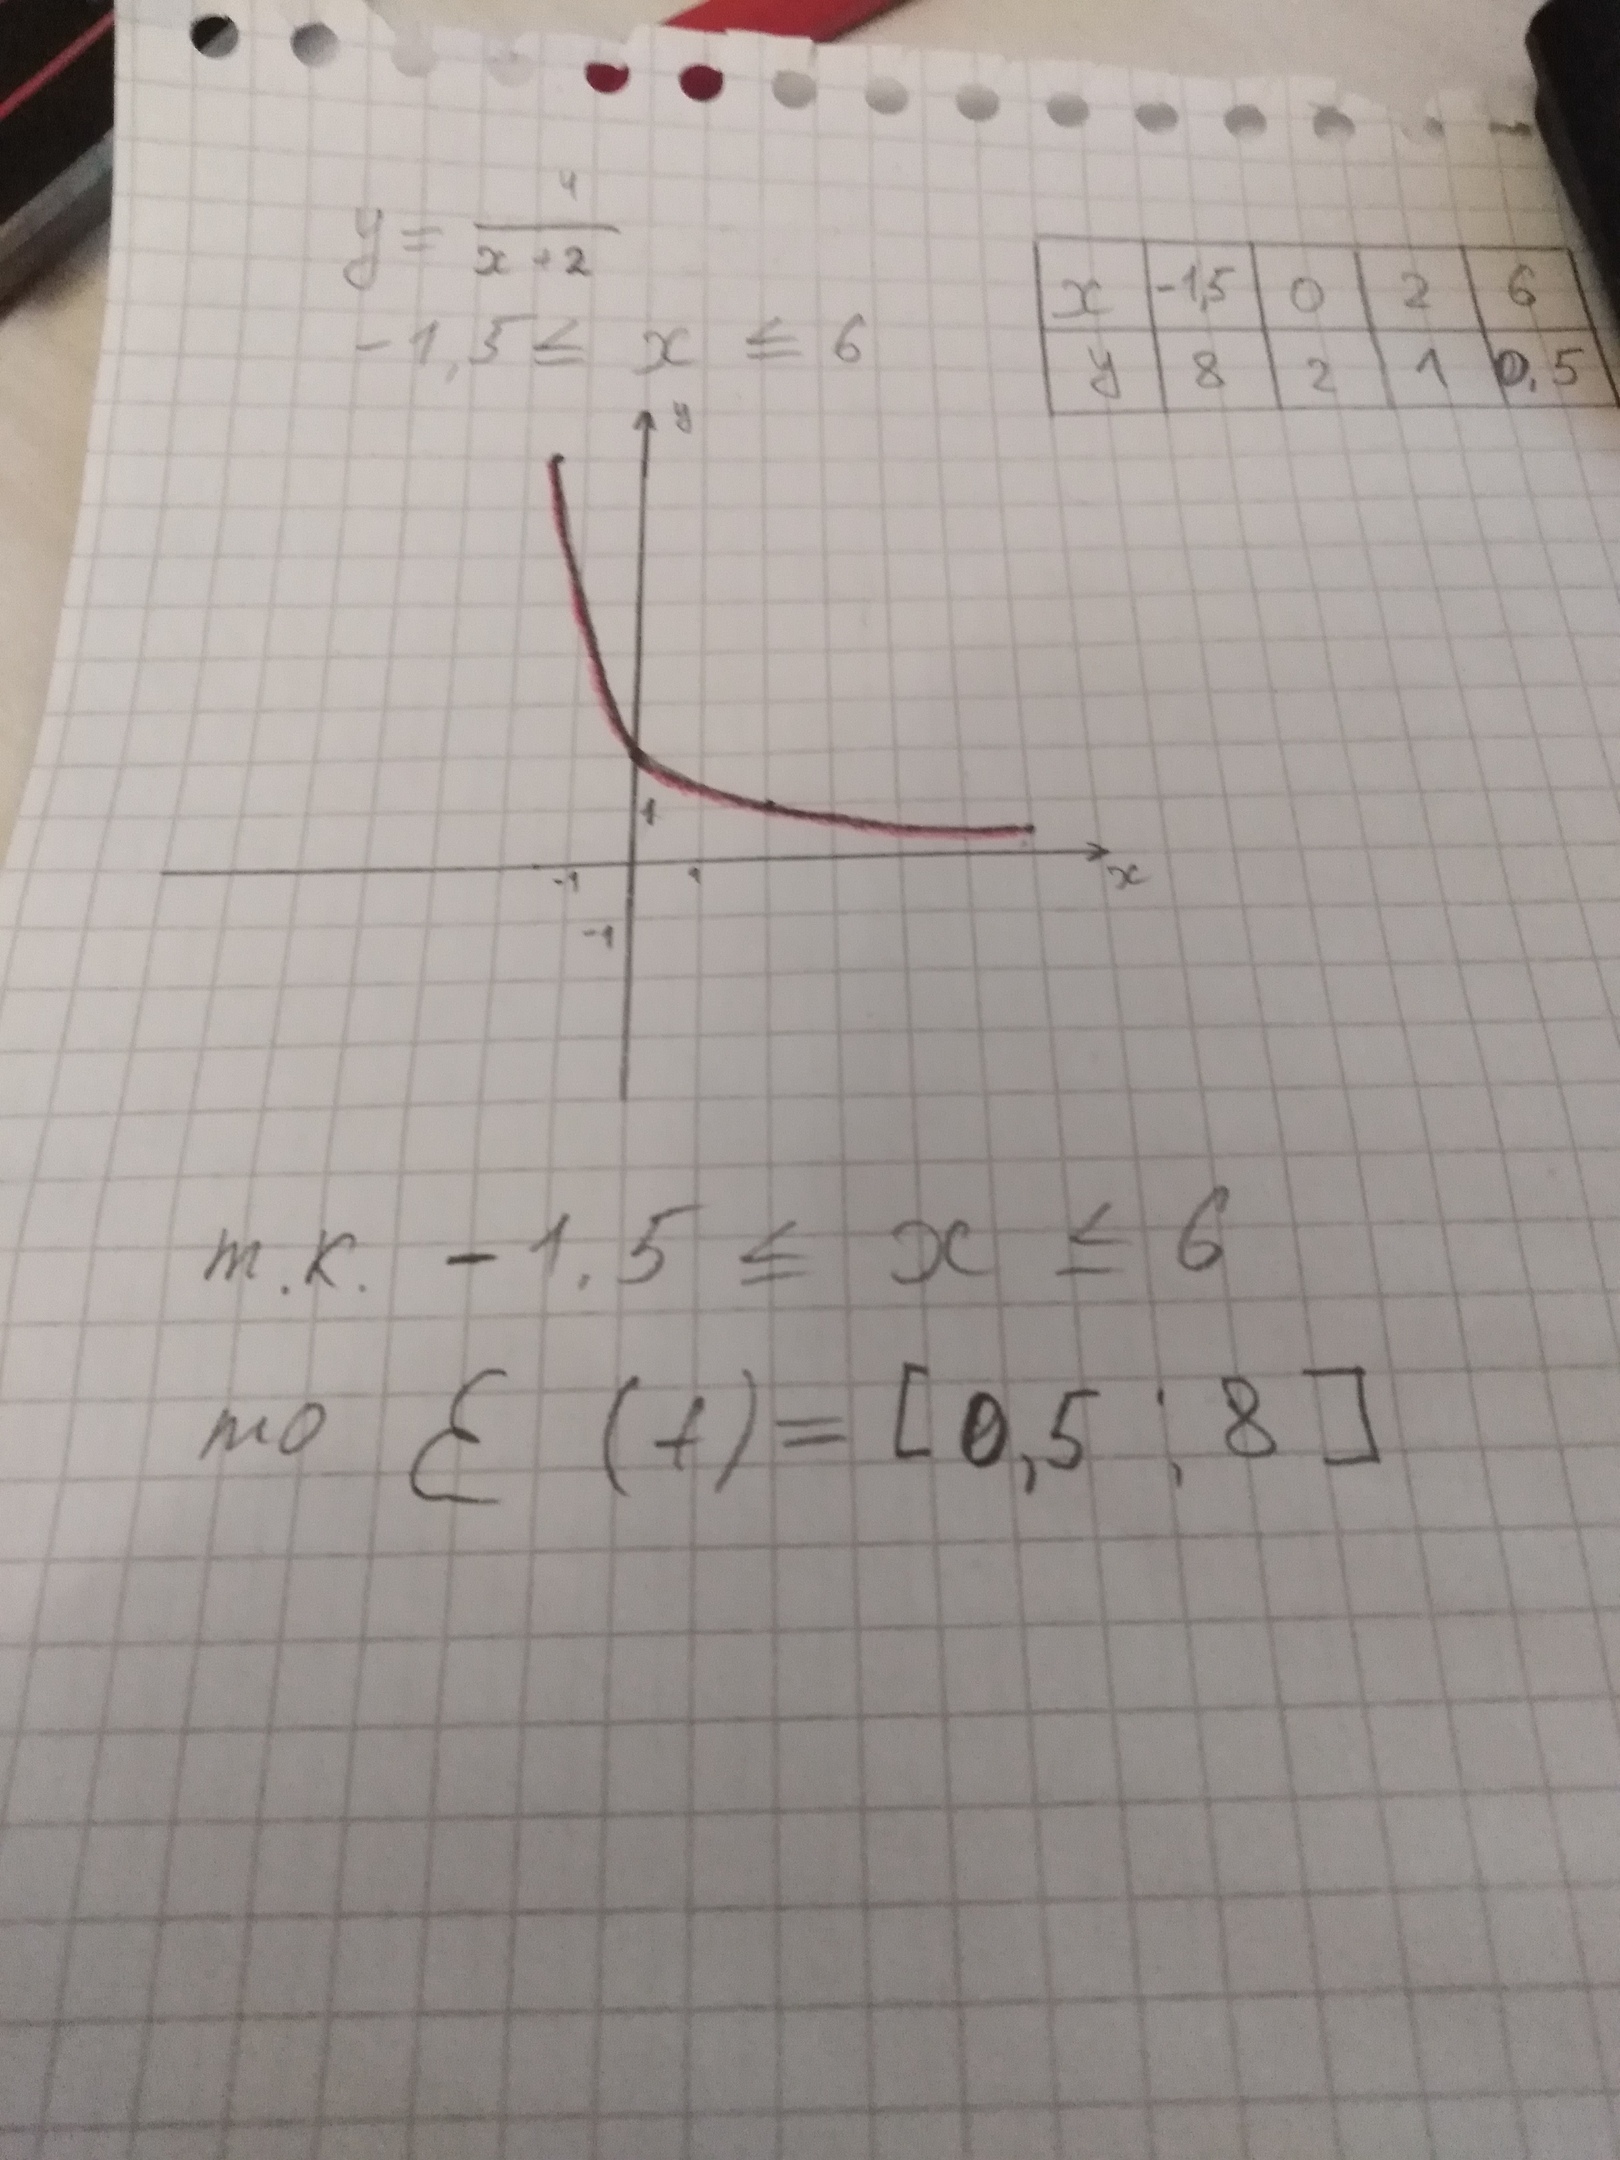 y = 4/(x+2)
-1,5 ≤ x ≤ 6
x -1,5 0 2 6
y 8 2 1 0,5
y
1
-1 1 x
-1
т.к. -1.5 ≤ x ≤ 6
то E (f) = [0,5 ; 8]